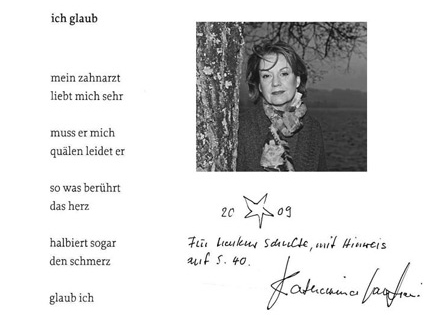 ich glaub
mein zahnarzt
liebt mich sehr
muss er mich
quälen leidet er
so was berührt
das herz
halbiert sogar
den schmerz
glaub ich
20 09
Für Schulte, mit Hinweis
auf S. 40.
Katharina